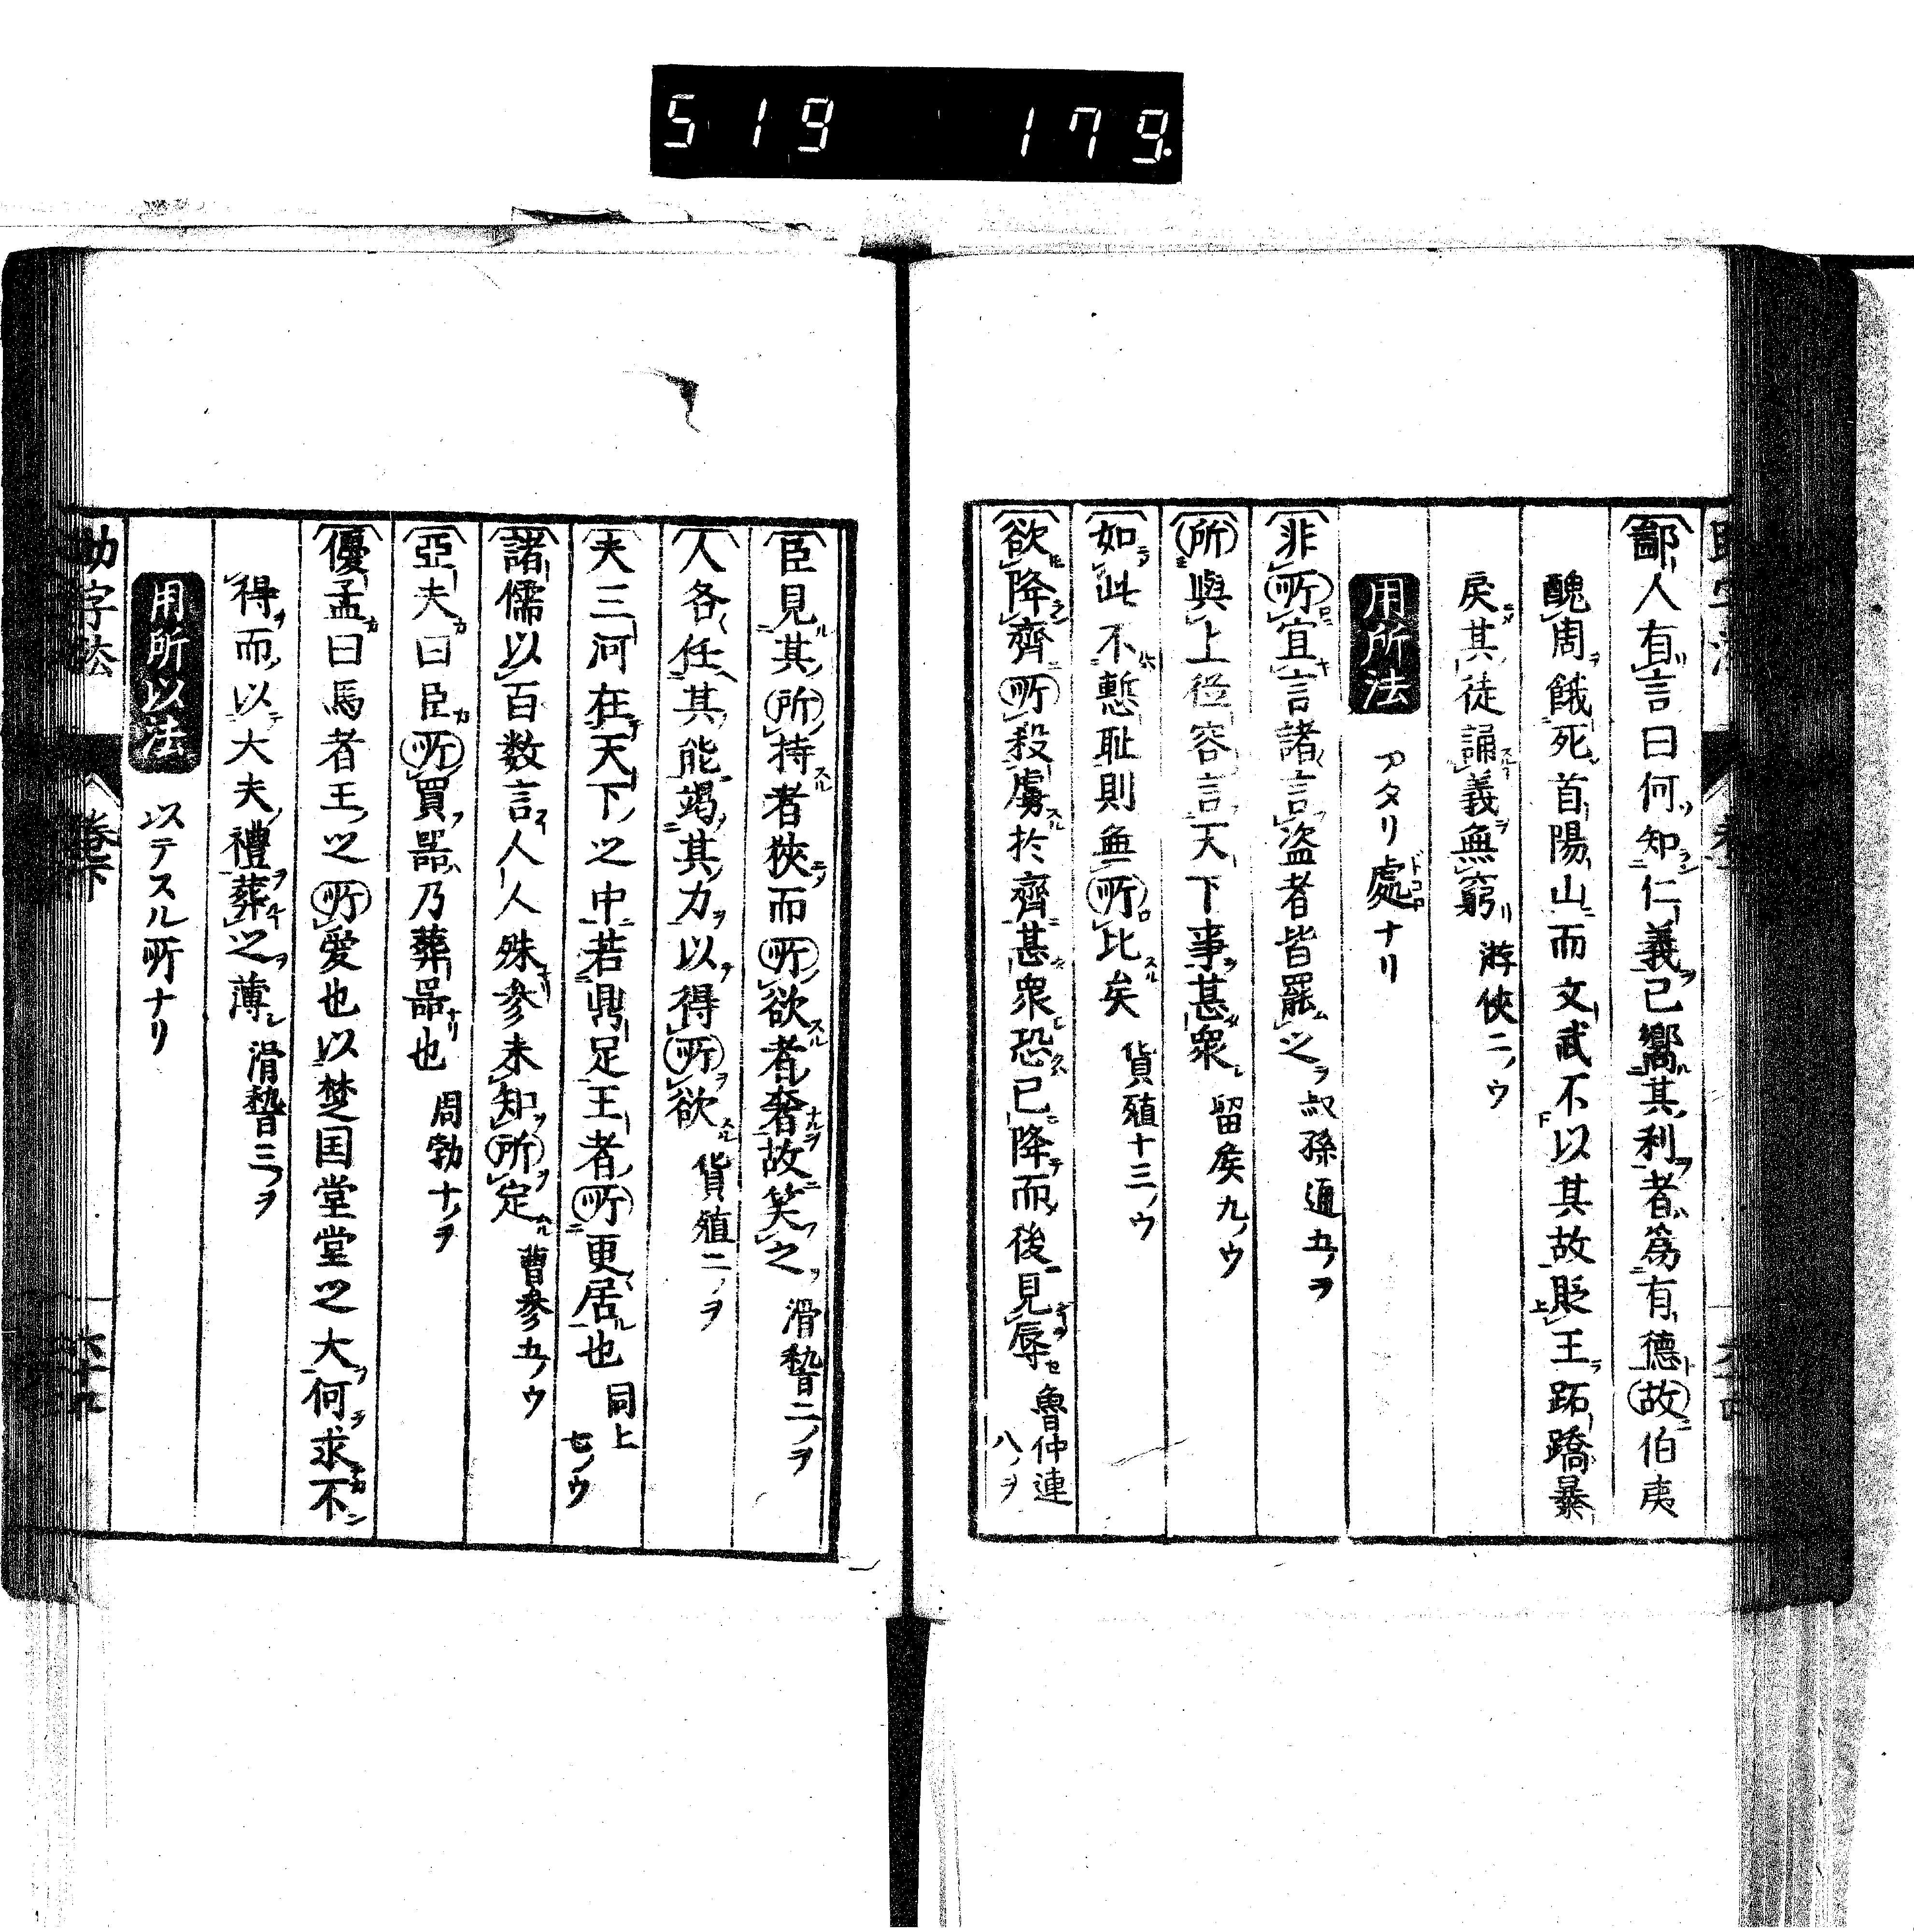 519 179.
鄙人有言曰何知仁義已嚮其利者為有德故伯夷
醜周餓死首陽山而文武不以其故貶王跖蹻暴
戾其徒誦義無窮 游俠二ノウ
用所法 アタリ處ナリ
非所宜言諸言盗者皆罷之 叔孫通五ノヲ
所與上從容言天下事甚衆 留矦九ノウ
如此不慙耻則無所比矣 貨殖十三ノウ
欲降齊所殺虜於齊甚衆恐已降而後見辱 魯仲連八ノヲ
臣見其所持者狹而所欲者奢故笑之 滑稽二ノヲ
人各任其能竭其力以得所欲 貨殖二ノヲ
夫三河在天下之中若鼎足王者所更居也 同上七ノウ
諸儒以百数言人人殊参未知所定 曹参五ノウ
亞夫曰臣所買噐乃葬噐也 周勃十ノヲ
優孟曰馬者王之所愛也以楚国堂堂之大何求不
得而以大夫禮葬之薄 滑稽三ノヲ
用所以法 以テスル所ナリ
助字法 卷下 六十九